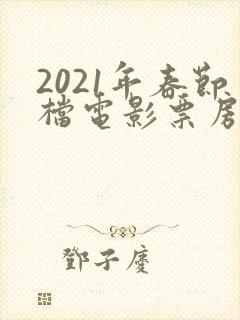 2021年春節
檔電影票房
鄧子慶